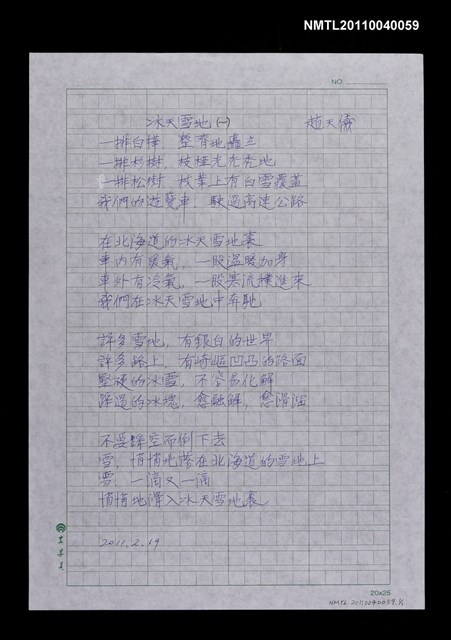 NMTL20110040059
NO
冰天雪地(一) 趙天儀
一排白樺，整齊地矗立
一排杉樹，枝椏光禿禿地
一排松樹，枝葉上有白雪覆蓋
我們的遊覽車，駛過高速公路
在北海道的冰天雪地裏
車內有暖氣，一股溫暖加身
車外有冷氣，一股寒流撲進來
我們在冰天雪地中奔馳
許多雪地，有銀白的世界
許多路上，有崎嶇凹凸的路面
堅硬的冰雪，不容易化解
踩過的冰塊，愈融解，愈滑溜
不要踩空而倒下去
雪，悄悄地落在北海道的雪地上
雪，一滴又一滴
悄悄地滑入冰天雪地裏
2011.2.19
20x25
NMTL 20110040059